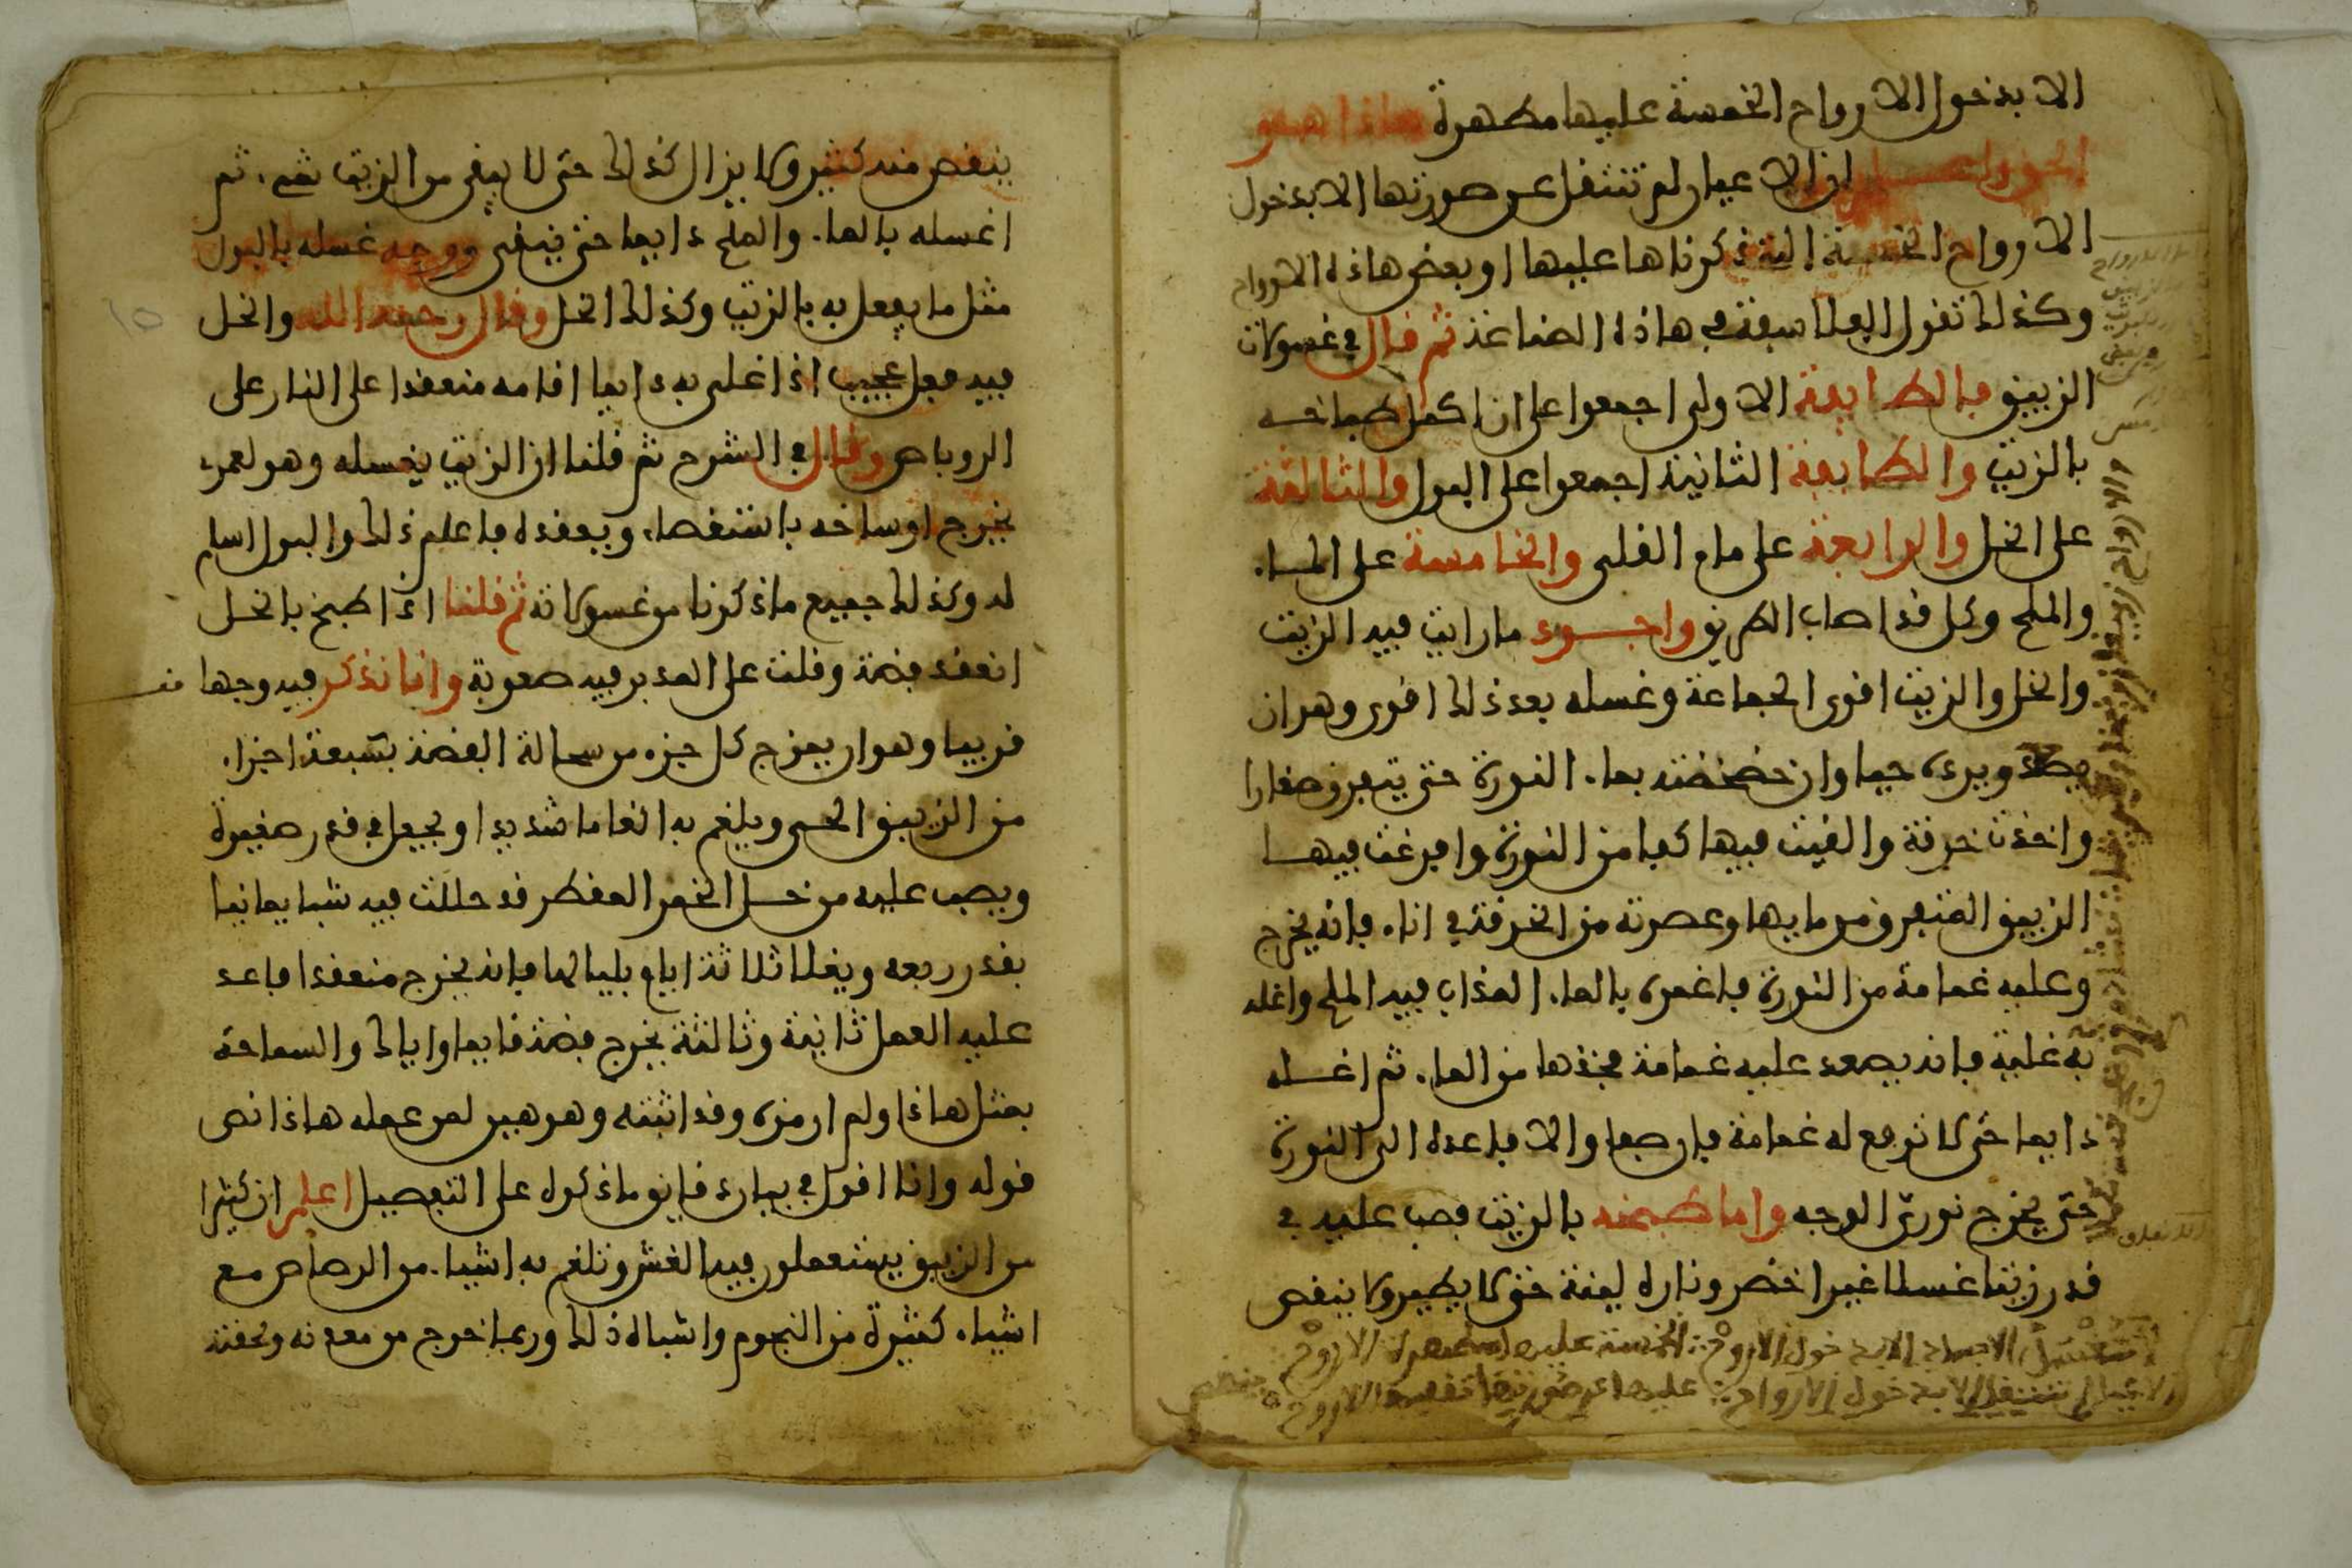 الا بدخول الارواح الخمسة عليها مطهرة هاذا هو
الحق واعلم ان الاعيان لم تنتقل عن صورتها الا بدخول
الارواح الخمسة التي ذكرناها عليها او بعض هاذه الارواح
وكذلك تقول الفلاسفة في هاذه الصناعة ثم قال في غسولات
الزيبق فالطايفة الاولى اجمعوا على ان اكمل طباخه
بالزيت والطايفة الثانية اجمعوا على البول والثالثة
على الخل والرابعة على ماء القلي والخامسة على الماء
والملح وكل قد اصاب الطريق واجود ما رايت فيه الزيت
والخل والزيت اقوى الجماعة وغسله بعد ذلك اقوى وهو ان
يصعد ويرده حيا وان خضخضته بماء النورة حتى يتفرق صغارا
واخذت خرقة والقيت فيها كفا من النورة وافرغت فيها
الزيبق المتفرق من مايها وعصرته من الخرقة في اناء فانه يخرج
وعليه غمامة من النورة فاغمره بالماء المذاب فيه الملح واغله
به غلية فانه يصعد عليه غمامة فخذها من الماء ثم اغسله
دايما حتى لا ترفع له غمامة فارجها والا فاعده الى النورة
حتى يخرج نوري الوجه واما طبخه بالزيت فصب عليه في
قدر زيتا غسلا غير اخضر وناره لينة حتى لا يطير ولا ينقص
تغسل الاجساد الا بدخول الارواح الخمسة عليها مطهرة الارواح
الاعيان لم تنتقل الا بدخول الارواح عليها عن صورتها الارواح
ينقص منه كثير ولا يزال كذلك حتى لا يبقى من الزيت شيء ثم
اغسله بالماء والملح دايما حتى ينقى ووجه غسله بالبول
مثل ما يفعل به بالزيت وكذلك الخل وقال رحمه الله والخل
فيه فعل عجيب اذا اغلى به دايما اقامه منعقدا على النار على
الروباص وقال في الشرح ثم قلنا ان الزيت يغسله وهو لعمري
يخرج اوساخه باستقصاء ويعقده فاعلم ذلك والبول اسلم
له وكذلك جميع ما ذكرنا من غسولاته ثم قلنا اذا طبخ بالخل
انعقد فضة وقلت على المدبر فيه صعوبة وانا نذكر فيه وجها
قريبا وهو ان يمزج كل جزء من سحالة الفضة بسبعة اجزاء
من الزيبق الحي ويلغم به الغاما شديدا ويجعل في قدر صغيرة
ويصب عليه من خل الخمر المقطر قد حللت فيه شبا يمانيا
بقدر ربعه ويغلا ثلاثة ايام بلياليها فانه يخرج منعقدا فاعد
عليه العمل ثانية وثالثة يخرج فضة قايما واياك والسماحة
بمثل هاذا ولم ارمزه وقد اثبته وهو هين لمن عمله هاذا نص
قوله وانا اقول في بيان دقايق ما ذكره على التفصيل اعلم ان كثيرا
من الزيبق يستعملون فيه الغش وتلغم به اشياء من الرصاص مع
اشياء كثيرة من النجوم واشباه ذلك وربما خرج من معدنه ولحقته